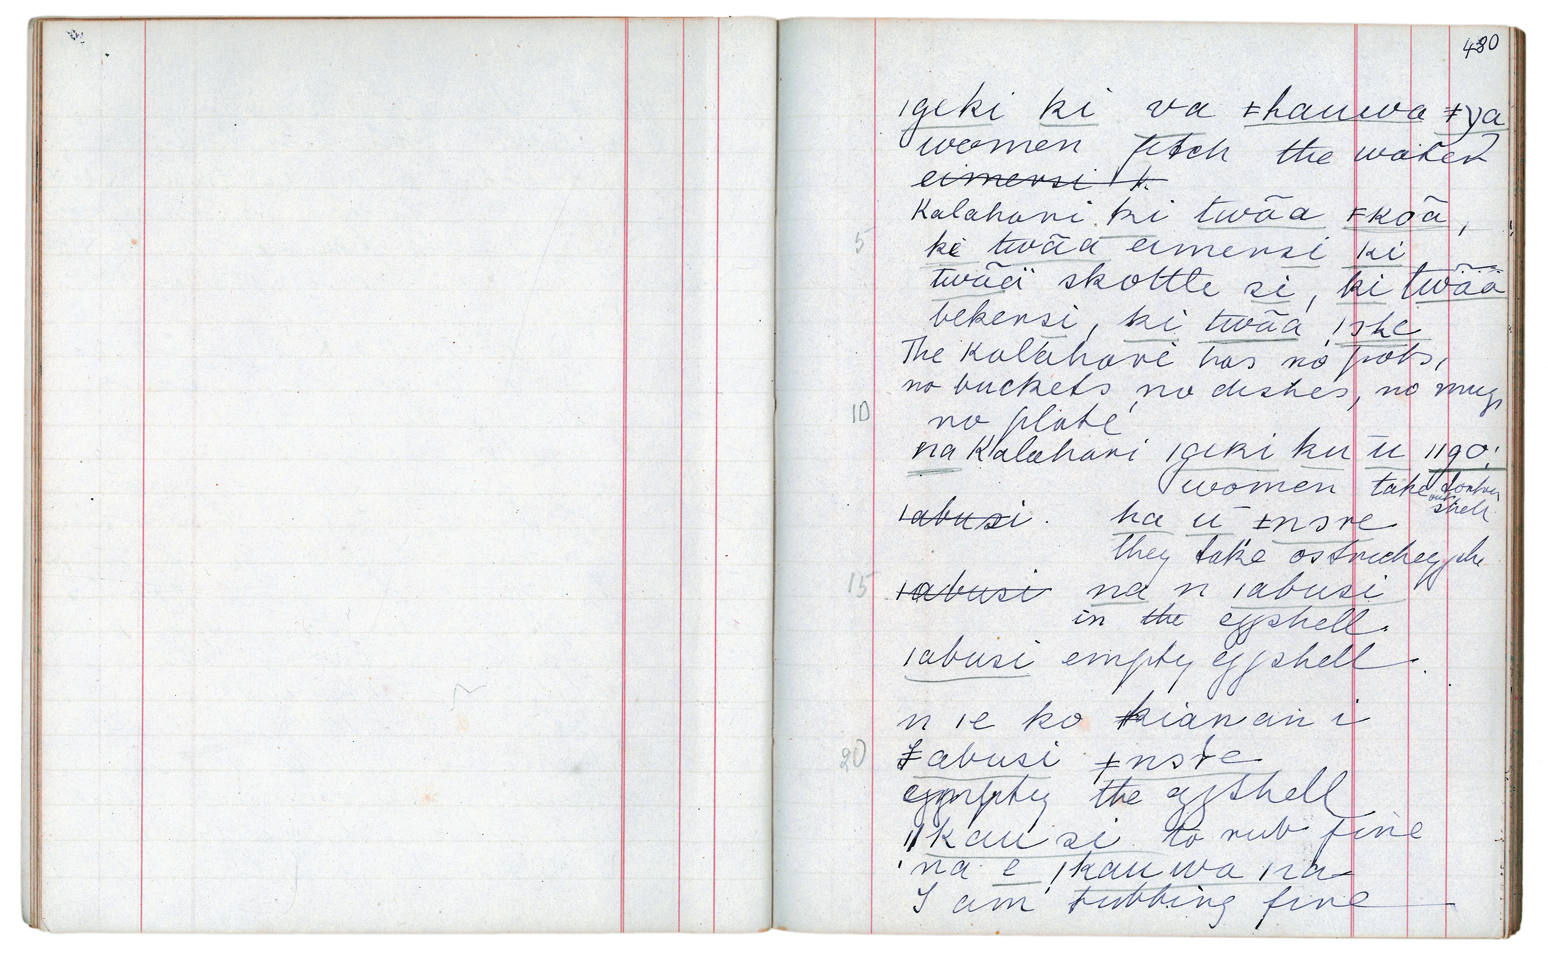 480
ǀgeki ki va ǂhauwa ǂya
women fetch the water
eimersi k
Kalahari ki twāa ǂkoā,
5 ki twāa eimersi ki
twāä skottle si, ki twāä
bekersi, ki twāa ǀske
The Kalahari has no pots,
no buckets no dishes, no mugs
10 no plate
na Kalahari ǀgeki ku ū ǁgo
women take
shell
ǀabusi. ha ū ǂnsre
they take ostrichegg
15 ǀabusi na n ǀabusi
in the eggshell.
ǀabusi empty eggshell.
n ǀe ko kianan i
20 ǂabusi ǂnsre
empty the eggshell
ǁkau si to rub fine
na e ǀkauwa ǀna
I am rubbing fine